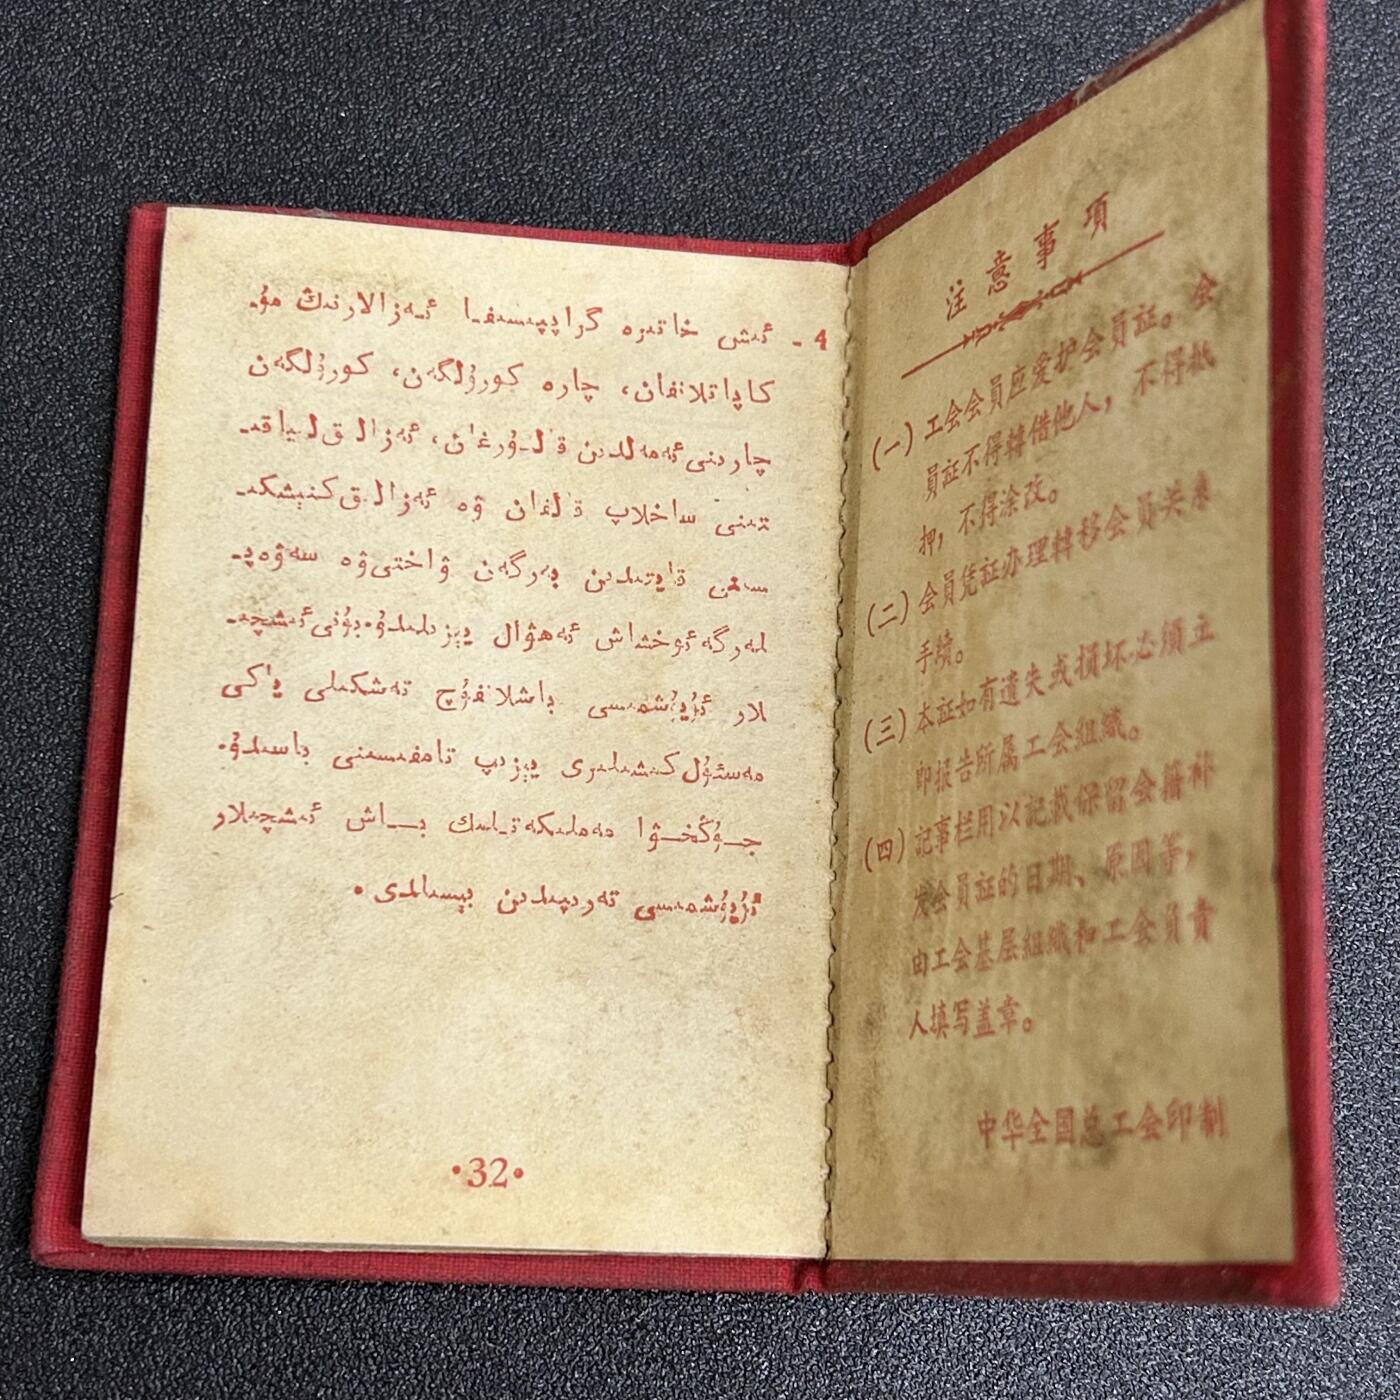 4 ـ ئىش خاتىرە گراپىسىغا ئەزالارنىڭ مۇـ
كاپاتلانغان، چارە كورۇلگەن، كورۇلگەن
چارىنى ئەمەلدىن قالدۇرغان، ئەزالىق لىياقىـ
تىنى ساخلاپ قالغان ۋە ئەزالىق كىنىشكىـ
سىنى قايتىدىن بەرگەن ۋاختى ۋە سەۋەپـ
لەرگە ئوخشاش ئەھۋال يېزىلىدۇ. بۇنى ئىشچىـ
لار ئۇيۇشمىسى باشلانغۇچ تەشكىلى ياكى
مەسئۇل كىشىلىرى يېزىپ تامغىسىنى باسىدۇ.
جۇڭخۋا مەملىكەتلىك باش ئىشچىلار
ئۇيۇشمىسى تەرىپىدىن بېسىلدى.
·32·
注意事項
(一) 工会会員应爱护会員証。会
員証不得轉借他人，不得抵
押，不得涂改。
(二) 会員凭証办理轉移会員关系
手續。
(三) 本証如有遺失或損坏必須立
即报告所属工会組織。
(四) 記事栏用以記載保留会籍补
发会員証的日期、原因等，
由工会基层組織和工会負責
人填写盖章。
中华全国总工会印制